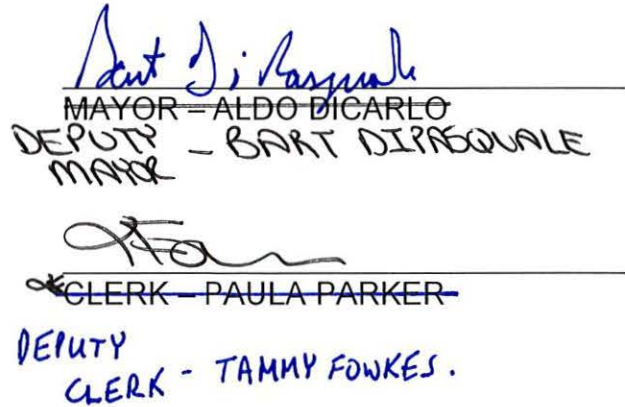 Bart DiPasquale
MAYOR – ALDO DICARLO
DEPUTY – BART DIPASQUALE
MAYOR
CLERK – PAULA PARKER
DEPUTY
CLERK - TAMMY FOWKES.